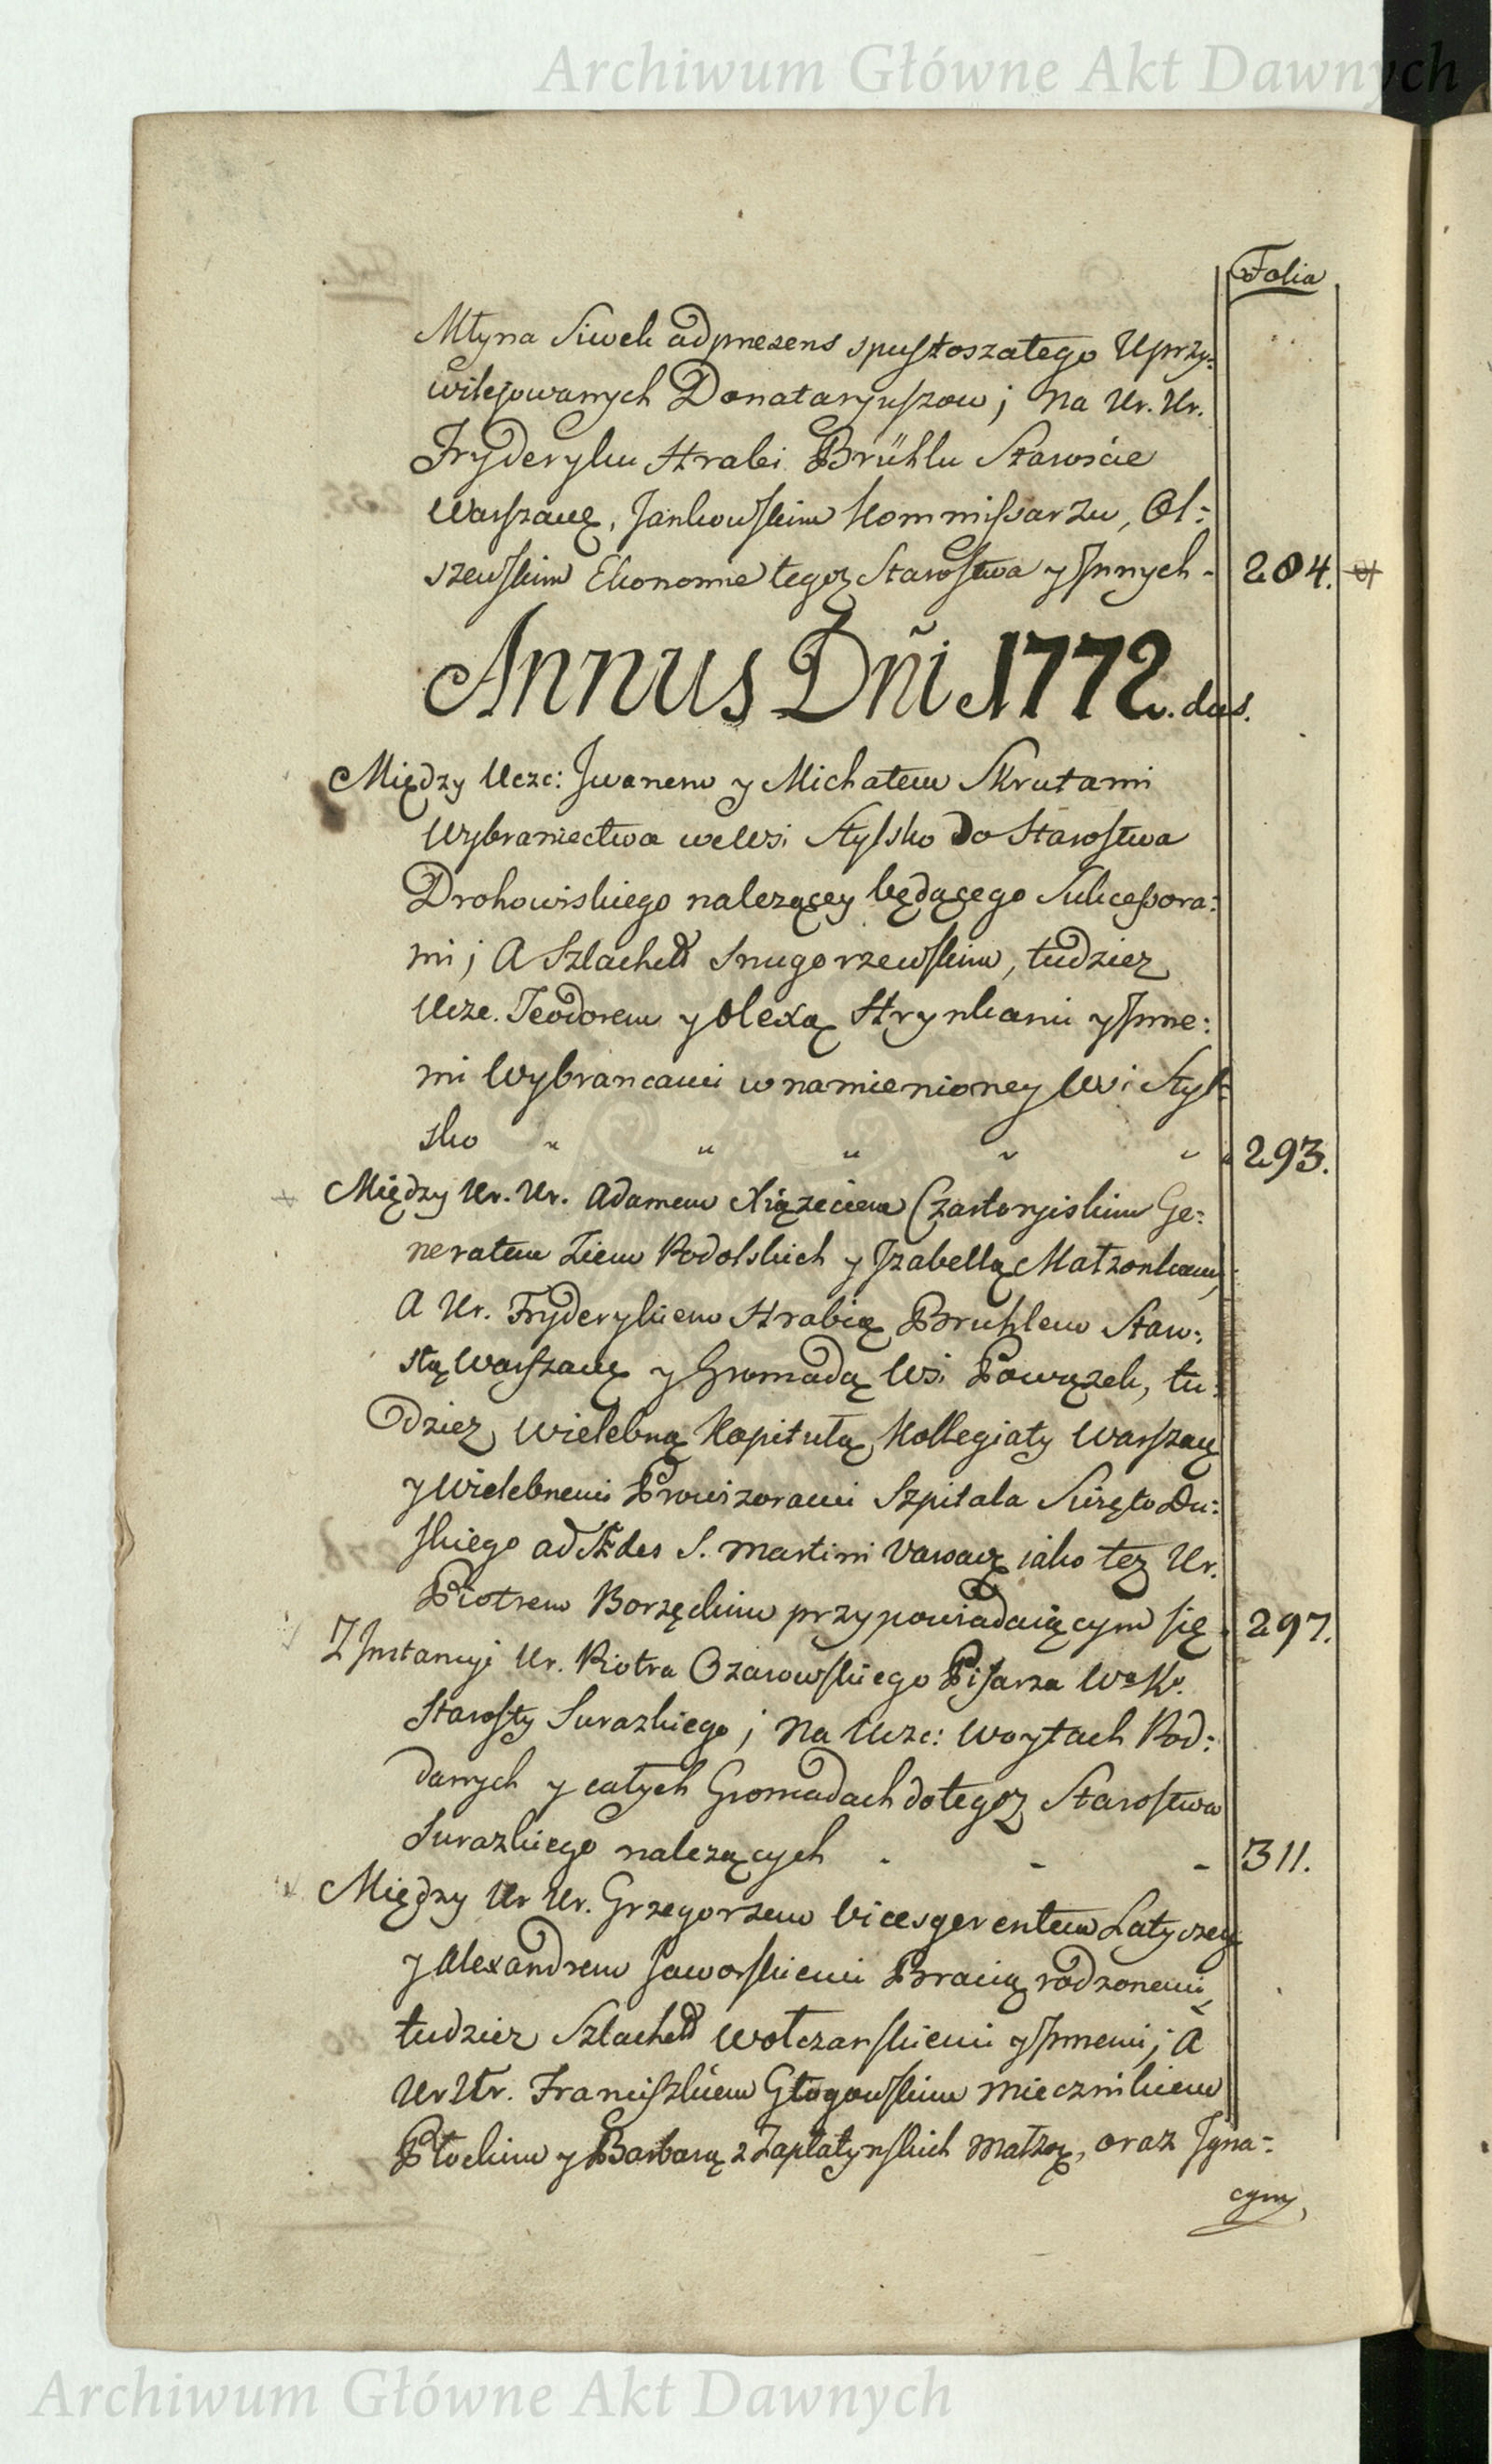 Archiwum Główne Akt Dawnych
Folia
Młyna Siwek ad prezens spustoszałego Uprzy:
wilejowanych Donataryuszow; Na Ur. Ur.
Fryderyku Hrabi Brühlu Staroście
Warszawę, Jankowskim Kommissarzu, Ol:
szewskim Ekonomie tegoz Starostwa y Jnnych - 284.
Annus Dñi 1772. dus.
Między Uczc: Jwanem y Michałem Skrutami
Wybraniectwa we Wsi Stylsko do Starostwa
Drohowiskiego nalezącey będącego Sukcessora:
mi; A Szlachetd Snugorzewskim, tudziez
Ucze. Teodorem y Olexą Hrynkami y Jnne:
mi Wybrancami w namienioney Wsi Styl:
sko " " " " " 293.
Między Ur. Ur. Adamem Xiązęciem Czartoryiskim Ge:
nerałem Ziem Podolskich y Jzabellą Małzonkami,
A Ur. Fryderykiem Hrabią Bruhlem Staro:
stą Warszawę y Gromadą Wsi Powązek, tu:
dziez Wielebną Kapitułą Kollegiaty Warszaw
y Wielebnemi Prowizorami Szpitala Swięto Du:
skiego ad Ædes S. Martini Varsav jako tez Ur.
Piotrem Borzęckim przypowiadaiącym się - 297.
Z Jnstancyi Ur. Piotra Ozarowskiego Pisarza W. K.
Starosty Surazkiego; Na Uczc: Woytach Pod:
danych y całych Gromadach do tegoz Starostwa
Surazkiego nalezących - - - 311.
Między Ur Ur. Grzegorzem Vicesgerentem Latyczew
y Alexandrem Jaworskiemi Bracią rodzonemi,
tudziez Szlachetd Wołczanskiemi y Jnnemi; A
Ur Ur. Franciszkiem Głogowskim Miecznikiem
Płockim y Barbarą z Zapłatynskich Małzoę, oraz Jgna=
cym,
Archiwum Główne Akt Dawnych